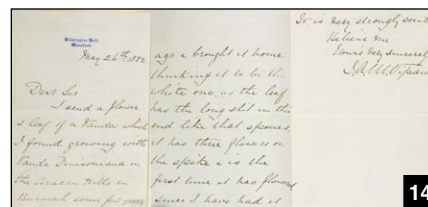 May 26th 1882
Dear Sir
I send a flower
& leaf of a Vanda which
I found growing with
Vanda Denisoniana on
the Aracan Hills in
Burmah some few years
ago & brought it home
thinking it to be the
white one as the leaf
has the long slit in the
end like that species,
it has three flowers on
the spike & is the
first time it has flowered
since I have had it
It is very strongly scented
Believe me
Yours very sincerely
14